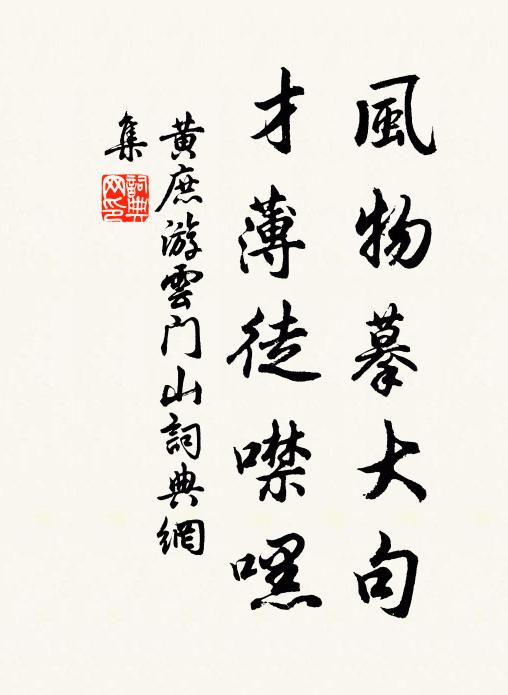 風物摹大句
才薄徒噤嘿
黄庶游雲门山詞典網
集
詞典
网印